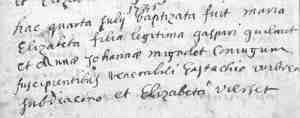 hac quarta Julij baptizata fuit maria
Elizabeta filia legitima gaspari
et Annae Johannae mignolet Coniugum
suscipientibus venerabili Eustachio
subdiacono et Elizabeta vierset